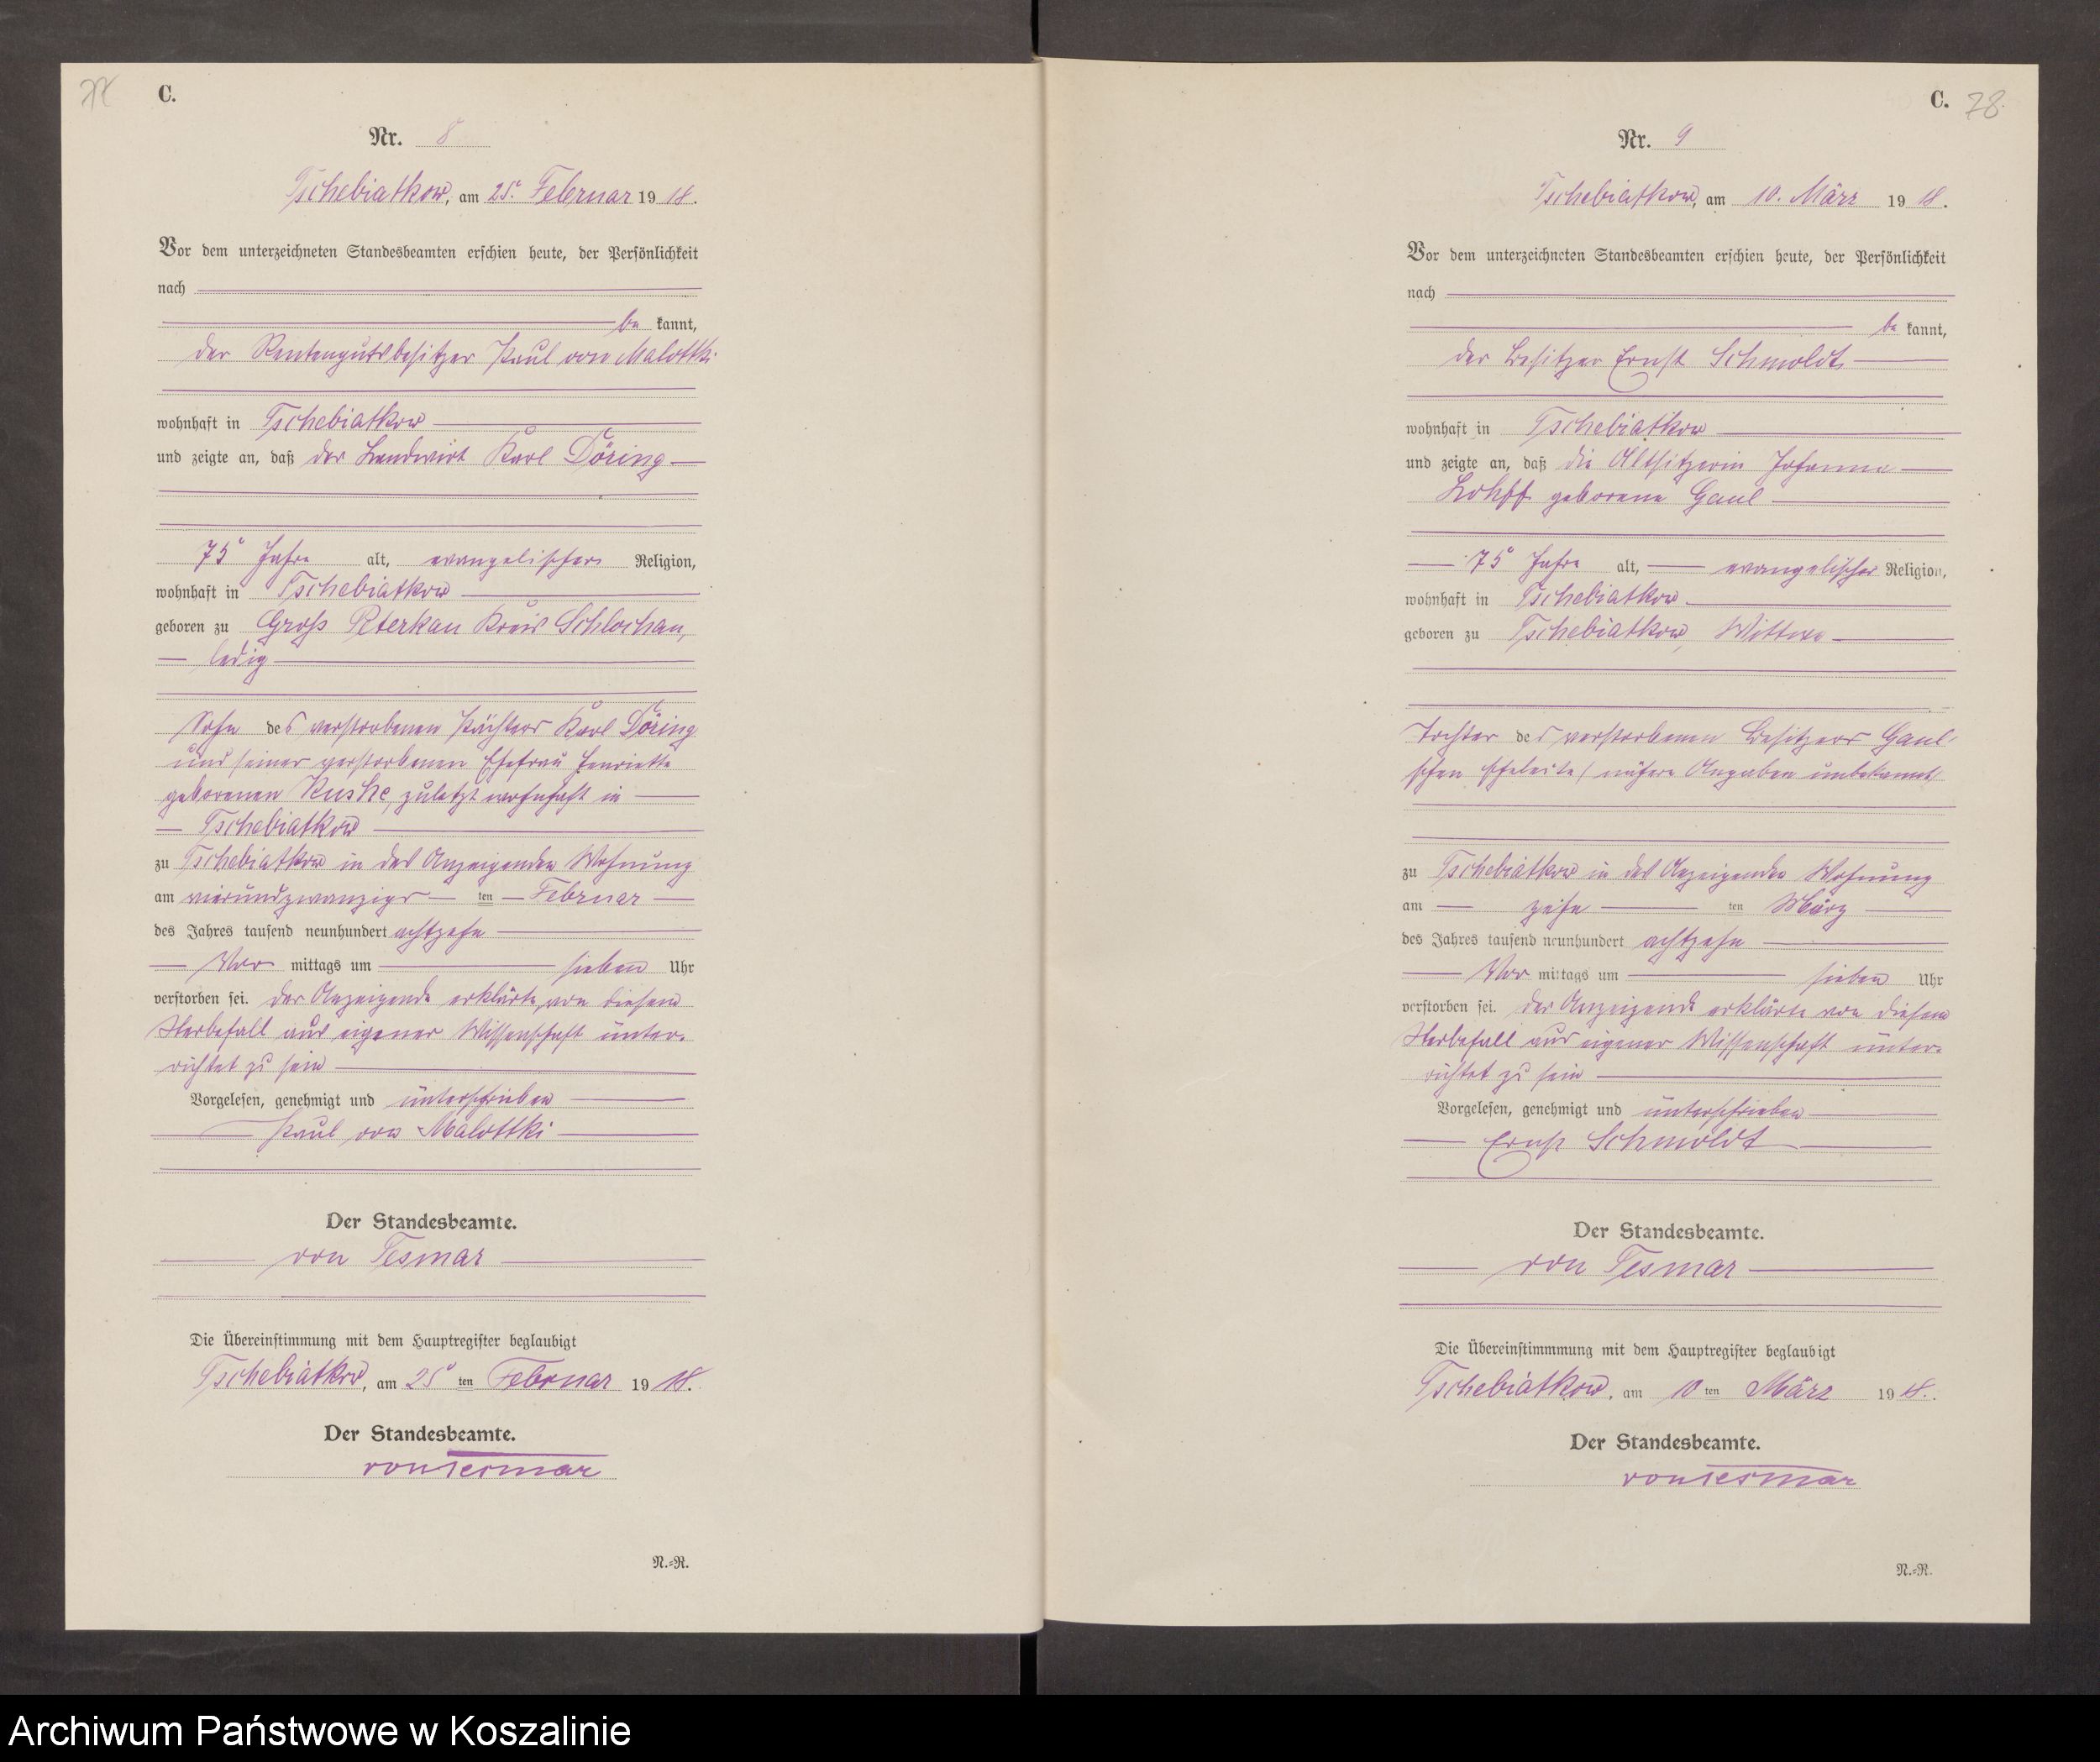 C.
Nr. 8
Tschebiatkow, am 25. Februar 1918.
Vor dem unterzeichneten Standesbeamten erschien heute, der Persönlichkeit
nach
be kannt,
der Rentengutsbesitzer Paul von Malottki
wohnhaft in Tschebiatkow
und zeigte an, daß der Landwirt Karl Döring
75 Jahre alt, evangelischer Religion,
wohnhaft in Tschebiatkow
geboren zu Gross Peterkau Kreis Schlochau,
ledig
Sohn des verstorbenen Pächters Karl Döring
und seiner verstorbenen Ehefrau Henriette
geborenen Kuske, zuletzt wohnhaft in
Tschebiatkow
zu Tschebiatkow in des Anzeigenden Wohnung
am vierundzwanzigs ten Februar
des Jahres tausend neunhundert achtzehn
Vor mittags um sieben Uhr
verstorben sei. Der Anzeigende erklärte, von diesem
Sterbefall aus eigener Wissenschaft unter-
richtet zu sein
Vorgelesen, genehmigt und unterschrieben
Paul von Malottki
Der Standesbeamte.
von Tesmar
Die Übereinstimmung mit dem Hauptregister beglaubigt
Tschebiatkow, am 25 ten Februar 1918.
Der Standesbeamte.
von Tesmar
N.=R.
C. 78
Nr. 9
Tschebiatkow, am 10. März 1918.
Vor dem unterzeichneten Standesbeamten erschien heute, der Persönlichkeit
nach
be kannt,
der Besitzer Ernst Schmoldt
wohnhaft in Tschebiatkow
und zeigte an, daß die Altsitzerin Johanna
geborene Gaul
75 Jahre alt, evangelischer Religion,
wohnhaft in Tschebiatkow
geboren zu Tschebiatkow, Wittwe
Tochter der verstorbenen Besitzer Gaul-
schen Eheleute / nähere Angaben unbekannt /
zu Tschebiatkow in des Anzeigenden Wohnung
am zehn ten März
des Jahres tausend neunhundert achtzehn
Vor mittags um sieben Uhr
verstorben sei. Der Anzeigende erklärte von diesem
Sterbefall aus eigener Wissenschaft unter-
richtet zu sein
Vorgelesen, genehmigt und unterschrieben
Ernst Schmoldt
Der Standesbeamte.
von Tesmar
Die Übereinstimmmung mit dem Hauptregister beglaubigt
Tschebiatkow, am 10 ten März 1918.
Der Standesbeamte.
von Tesmar
N.=R.
Archiwum Państwowe w Koszalinie